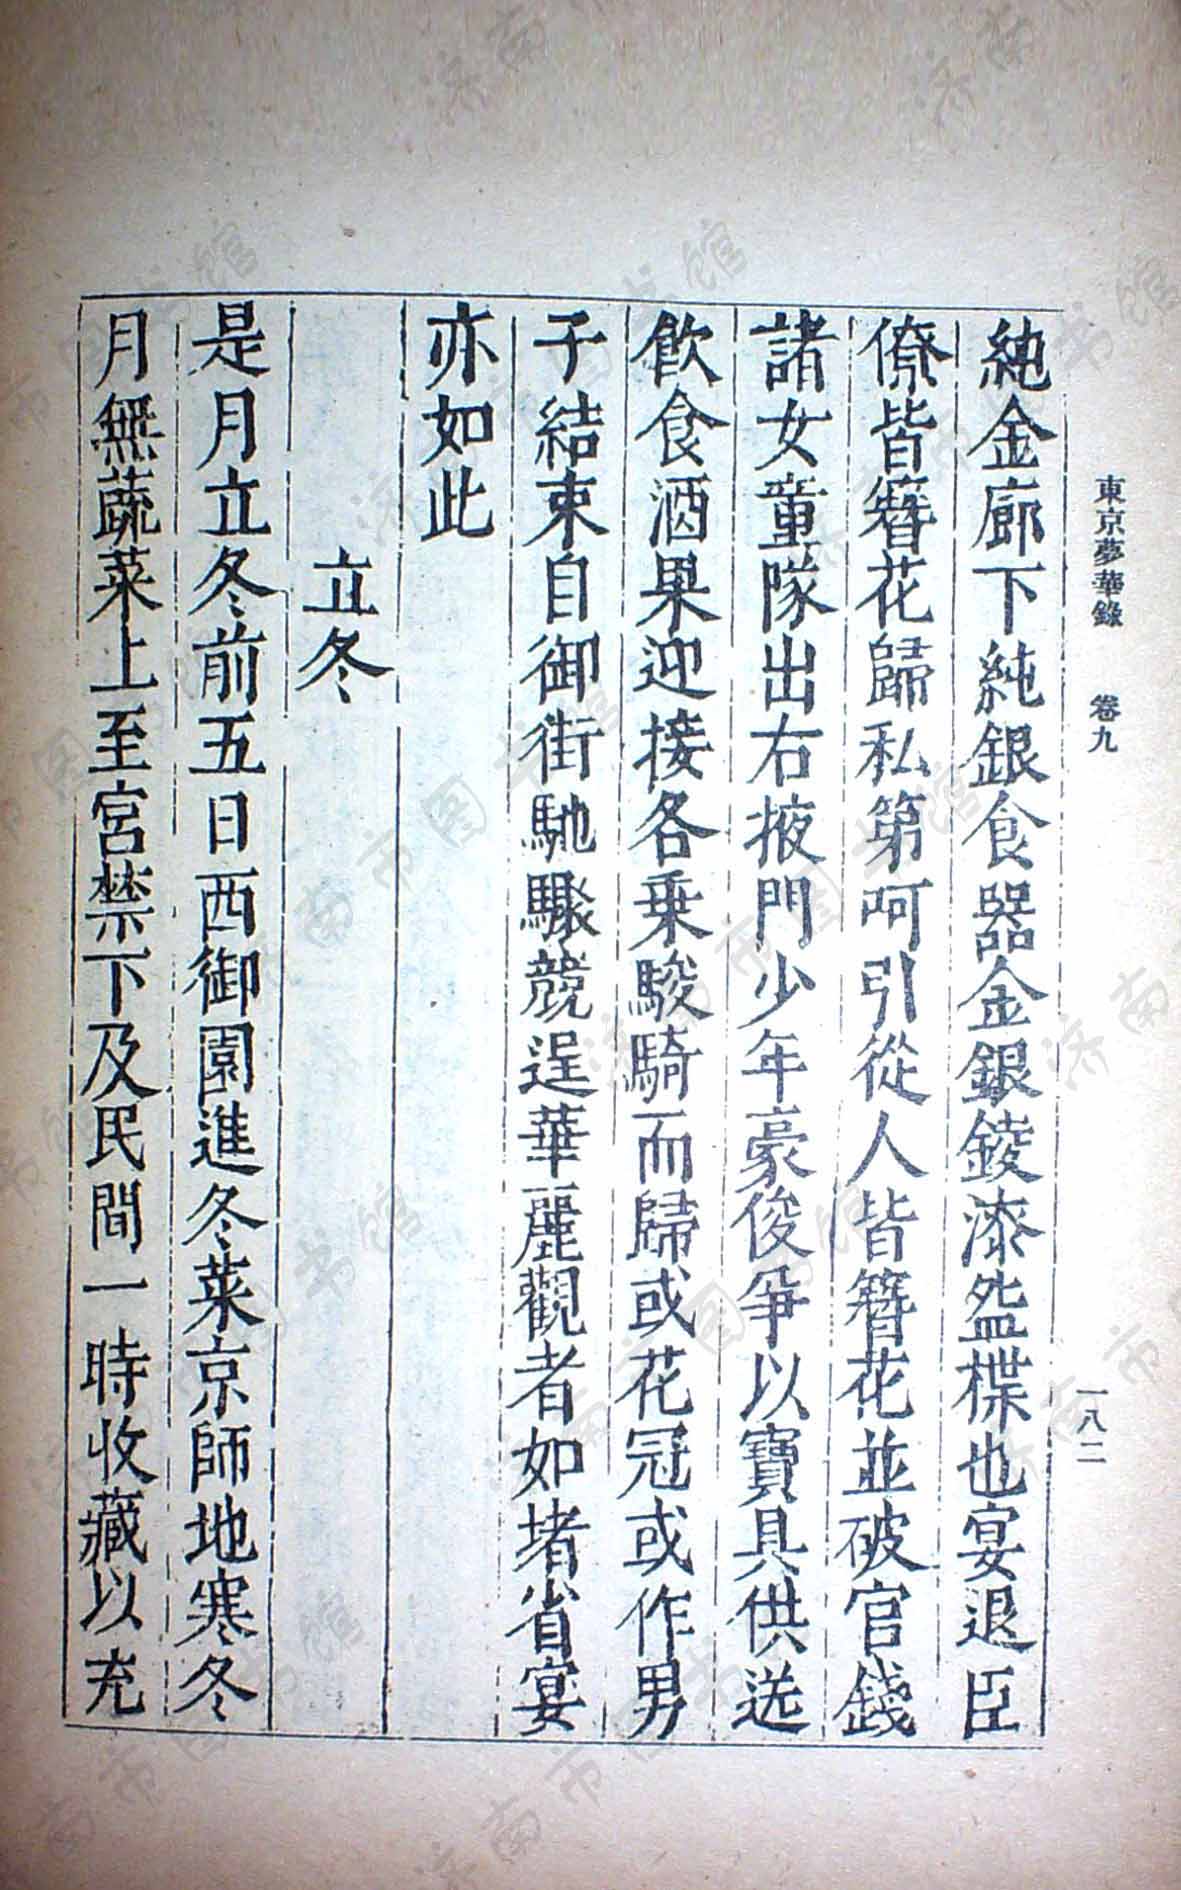 東京夢華錄　卷九　一八二
純金廊下純銀食器金銀錂漆盌楪也宴退臣
僚皆簪花歸私第呵引從人皆簪花並破官錢
諸女童隊出右掖門少年豪俊爭以寶具供送
飲食酒果迎接各乗駿騎而歸或花冠或作男
子結束自御街馳驟競逞華麗觀者如堵省宴
亦如此
立冬
是月立冬前五日西御園進冬菜京師地寒冬
月無蔬菜上至宮禁下及民間一時收藏以充
济南市图书馆